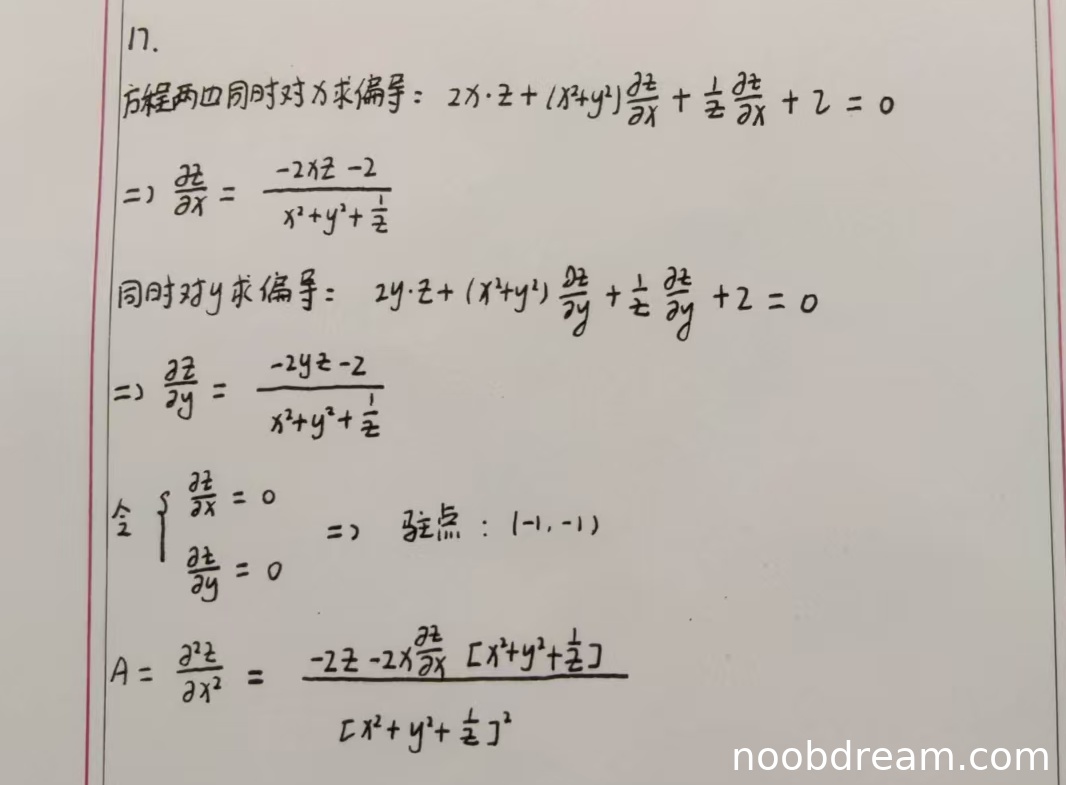 17.
方程两边同时对x求偏导: 2x·z+(x²+y²)∂z/∂x + 1/z ∂z/∂x + 2 = 0
=> ∂z/∂x = (-2xz-2)/(x²+y²+1/z)
同时对y求偏导: 2y·z+(x²+y²)∂z/∂y + 1/z ∂z/∂y + 2 = 0
=> ∂z/∂y = (-2yz-2)/(x²+y²+1/z)
令 { ∂z/∂x = 0
∂z/∂y = 0 => 驻点: (-1,-1)
A = ∂²z/∂x² = (-2z-2x∂z/∂x [x²+y²+1/z])/[x²+y²+1/z]²
noobdream.com